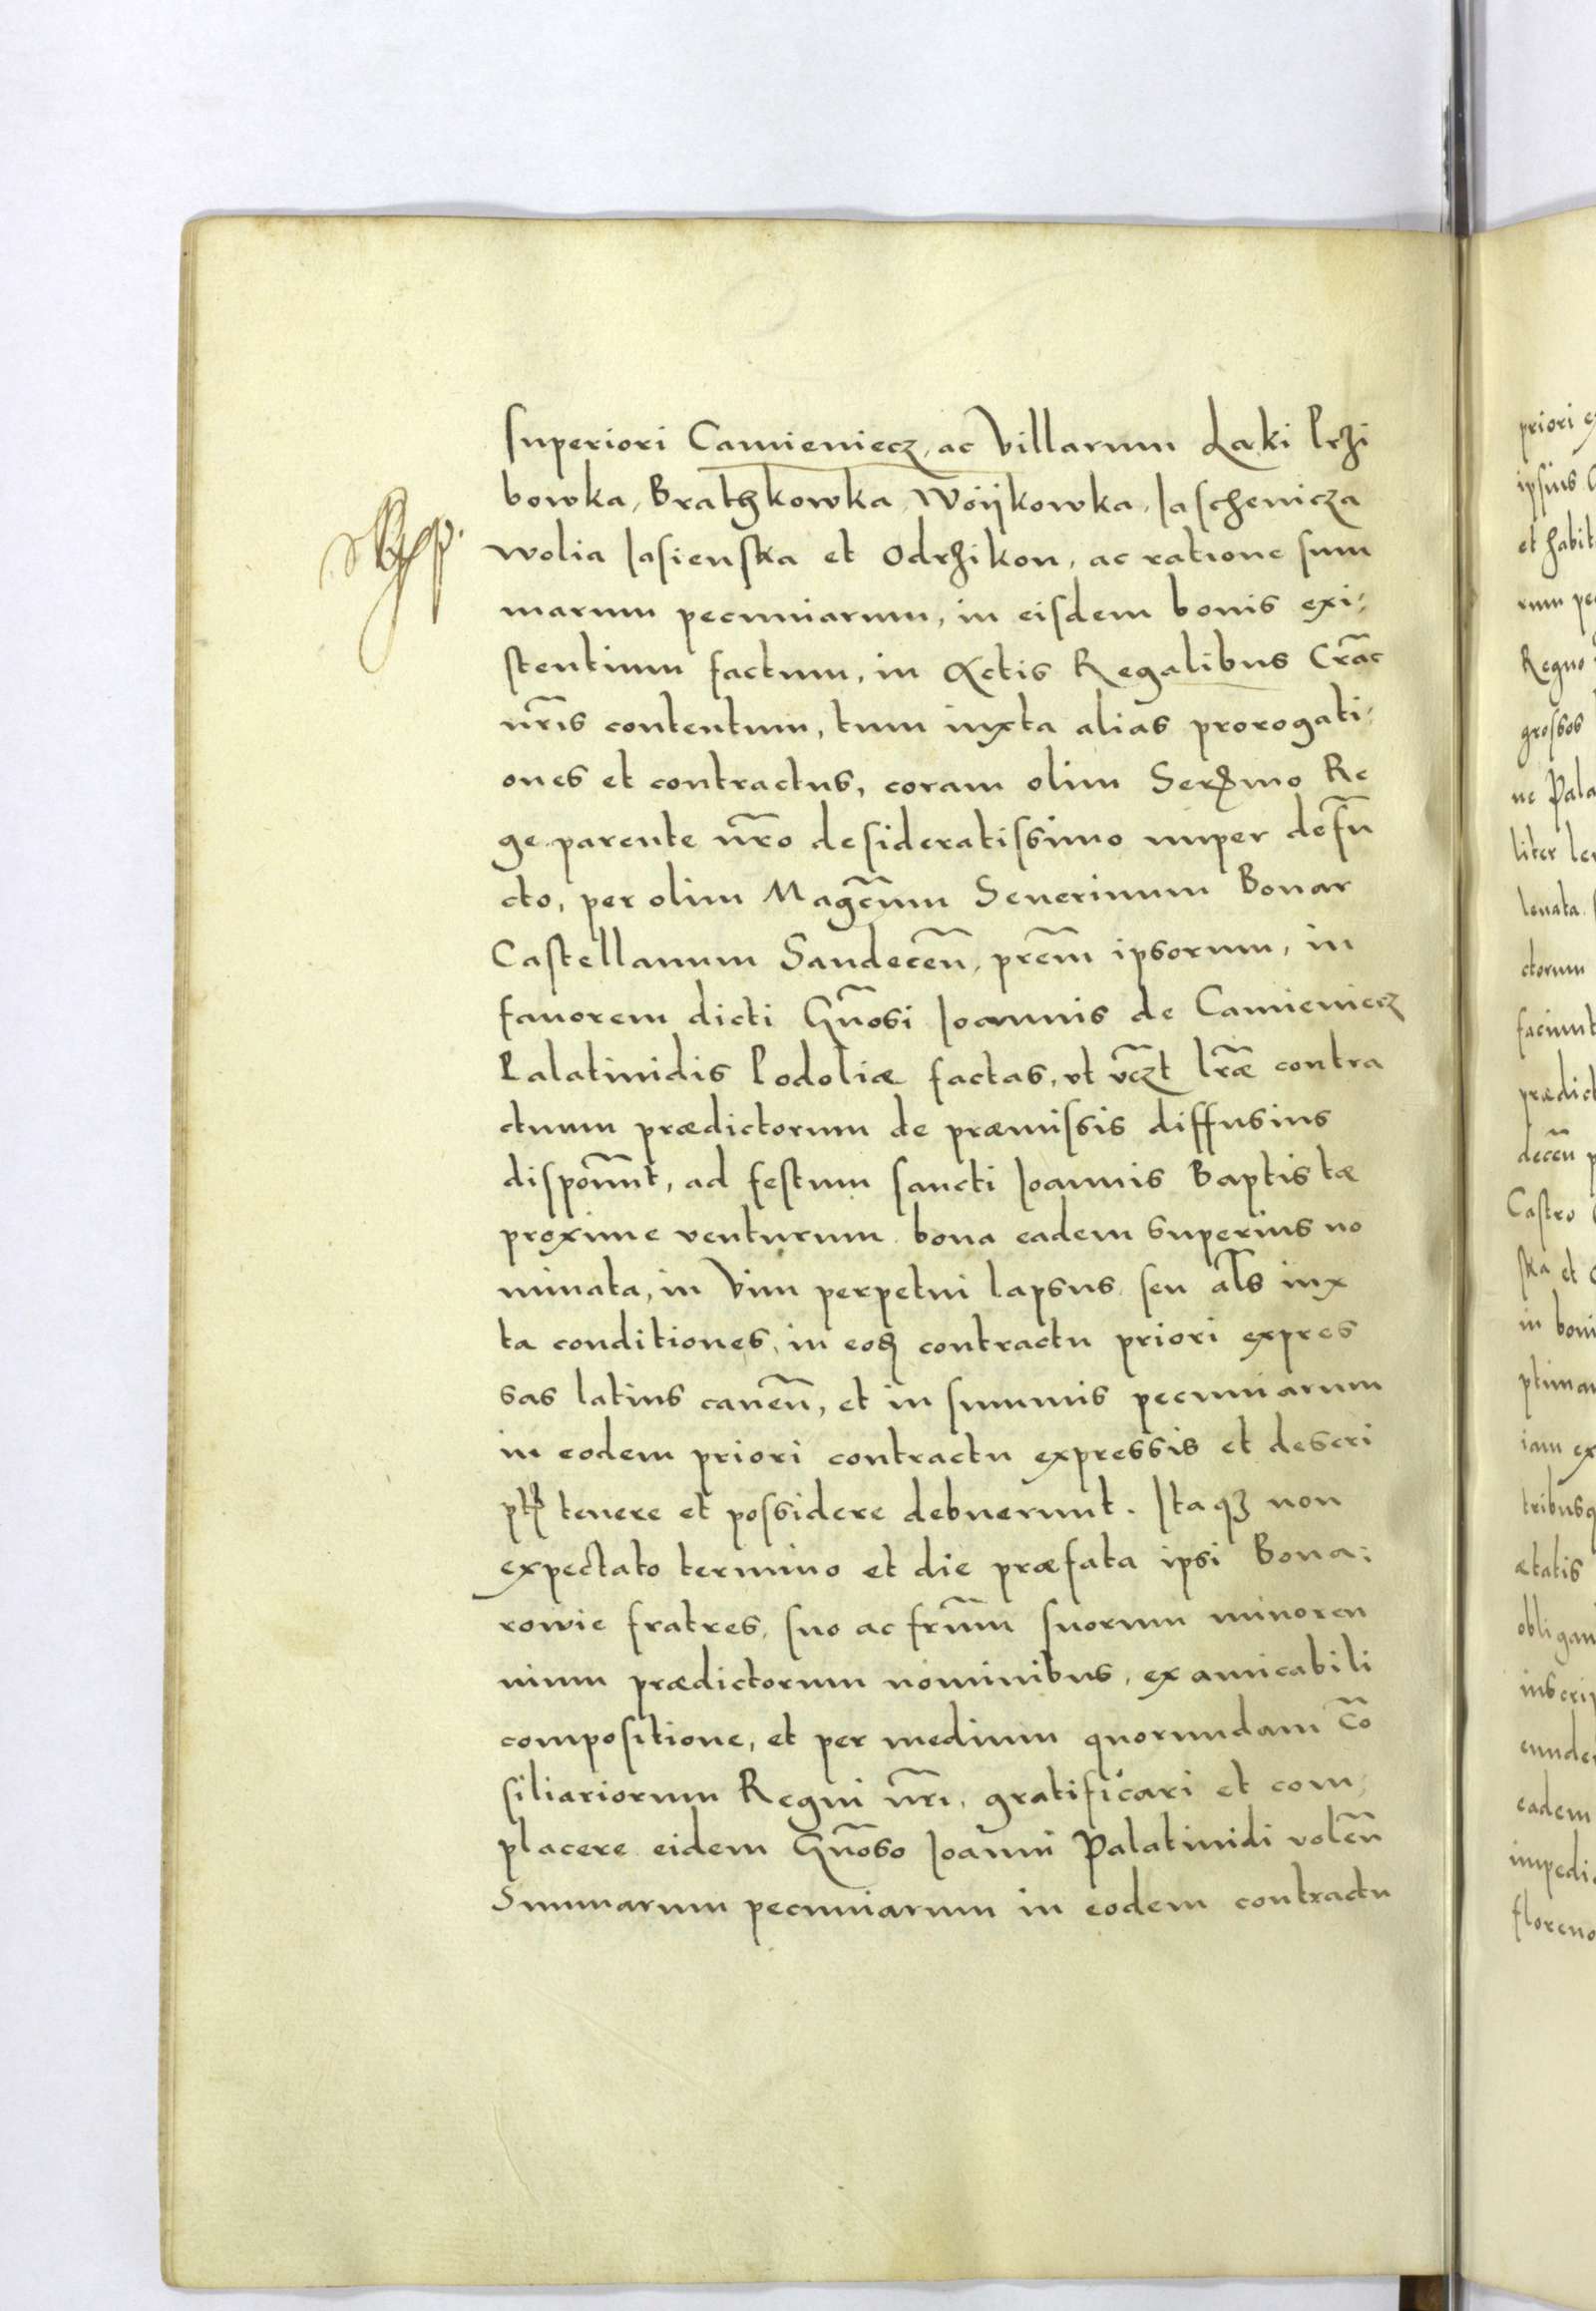 superiori Camieniecz, ac Villarum Læki Przi
bowka, Brathkowka, Woijkowka, Jaschenicza
wolia Jasienska et Odrzikon, ac ratione sum
marum pecuniarum, in eisdem bonis exi-
stentium factum, in Actis Regalibus Crac̃
nr̃is contentum, tum iuxta alias prorogati-
ones et contractus, coram olim Ser̃mo Re
ge parente nr̃o desideratissimo nuper defũ
cto, per olim Magc̃um Seuerinum Bonar
Castellanum Sandeceñ, prẽm ipsorum, in
fauorem dicti Gñosi Joannis de Camieniecz
Palatinidis Podoliæ factas, vt vc̃zt lr̃æ contra
ctuum prædictorum de præmissis diffusius
disponũnt, ad festum sancti Joannis Baptistæ
proxime venturum. bona eadem superius no
minata, in Vim perpetui lapsus, seu al̃s iux
ta conditiones, in eod contractu priori expres
sas latius caueñ, et in summis pecuniarum
in eodem priori contractu expressis et descri
ptis tenere et possidere debuerunt. Itaqꝫ non
expectato termino et die præfata ipsi Bona-
rowie fratres, suo ac frũm suorum minoren
nium prædictorum nominibus, ex amicabili
compositione, et per medium quorundam cõ
siliariorum Regni nr̃i, gratificari et com-
placere eidem Gñoso Joanni Palatinidi voleñ
Summarum pecuniarum in eodem contractu
priori
ipsius
et habit
Regno
grossos
ne Pala
liter
leuata
ctorum
faciunt
prædict
deceñ
Castro
ska et
in boni
iam ex
ætatis
eadem